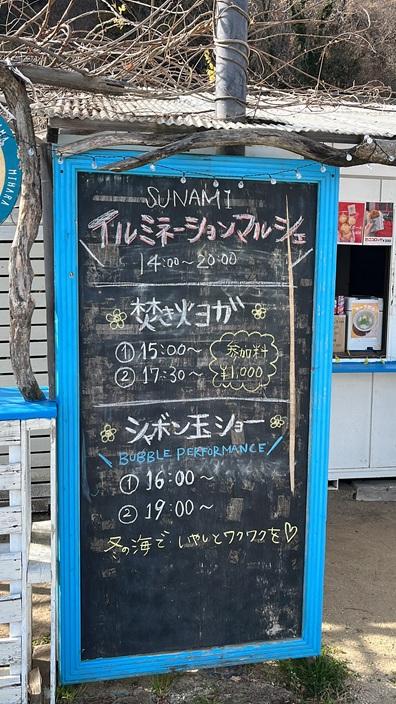 SUNAMI
イルミネーションマルシェ
14:00~20:00
焚き火ヨガ
①15:00~
②17:30~
参加料
¥1,000
シャボン玉ショー
BUBBLE PERFORMANCE
①16:00~
②19:00~
冬の海で いやしとワクワクを♡
MIHARA